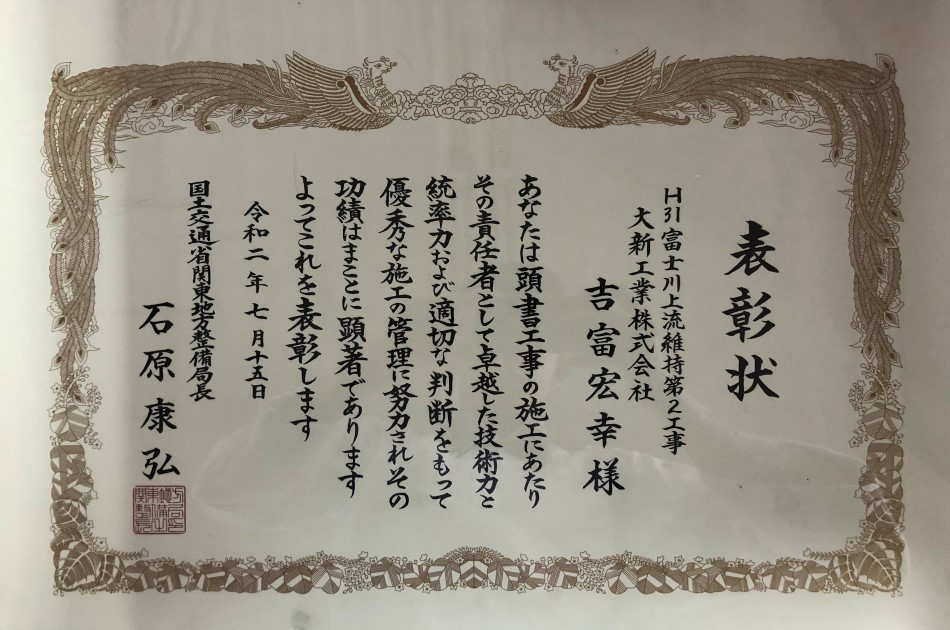 表彰状
H31富士川上流維持第2工事
大新工業株式会社
吉富宏幸様
あなたは頭書工事の施工にあたり
その責任者として卓越した技術力と
統率力および適切な判断をもって
優秀な施工の管理に努力されその
功績はまことに顕著であります
よってこれを表彰します
令和二年七月十五日
国土交通省関東地方整備局長
石原康弘